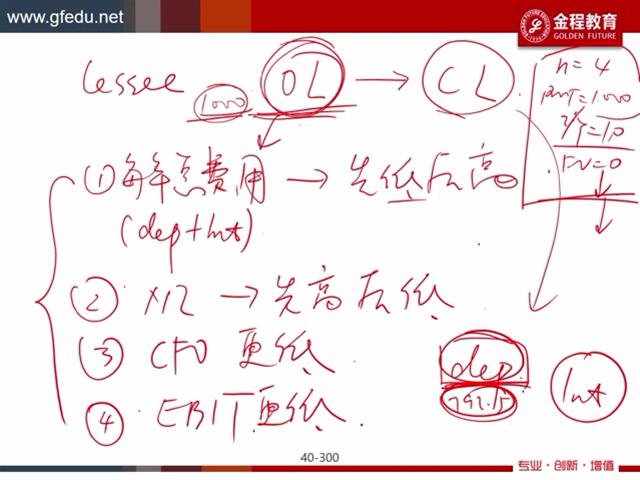 www.gfedu.net
金程教育
GOLDEN FUTURE
lessee 1000 OL → CL
n=4
PMT=1000
I/Y=10
FV=0
① 每年总费用 → 先低后高
(dep+Int)
② NI → 先高后低
③ CFO 更低
④ EBIT 更低
dep
792.15
Int
40-300
专业·创新·增值